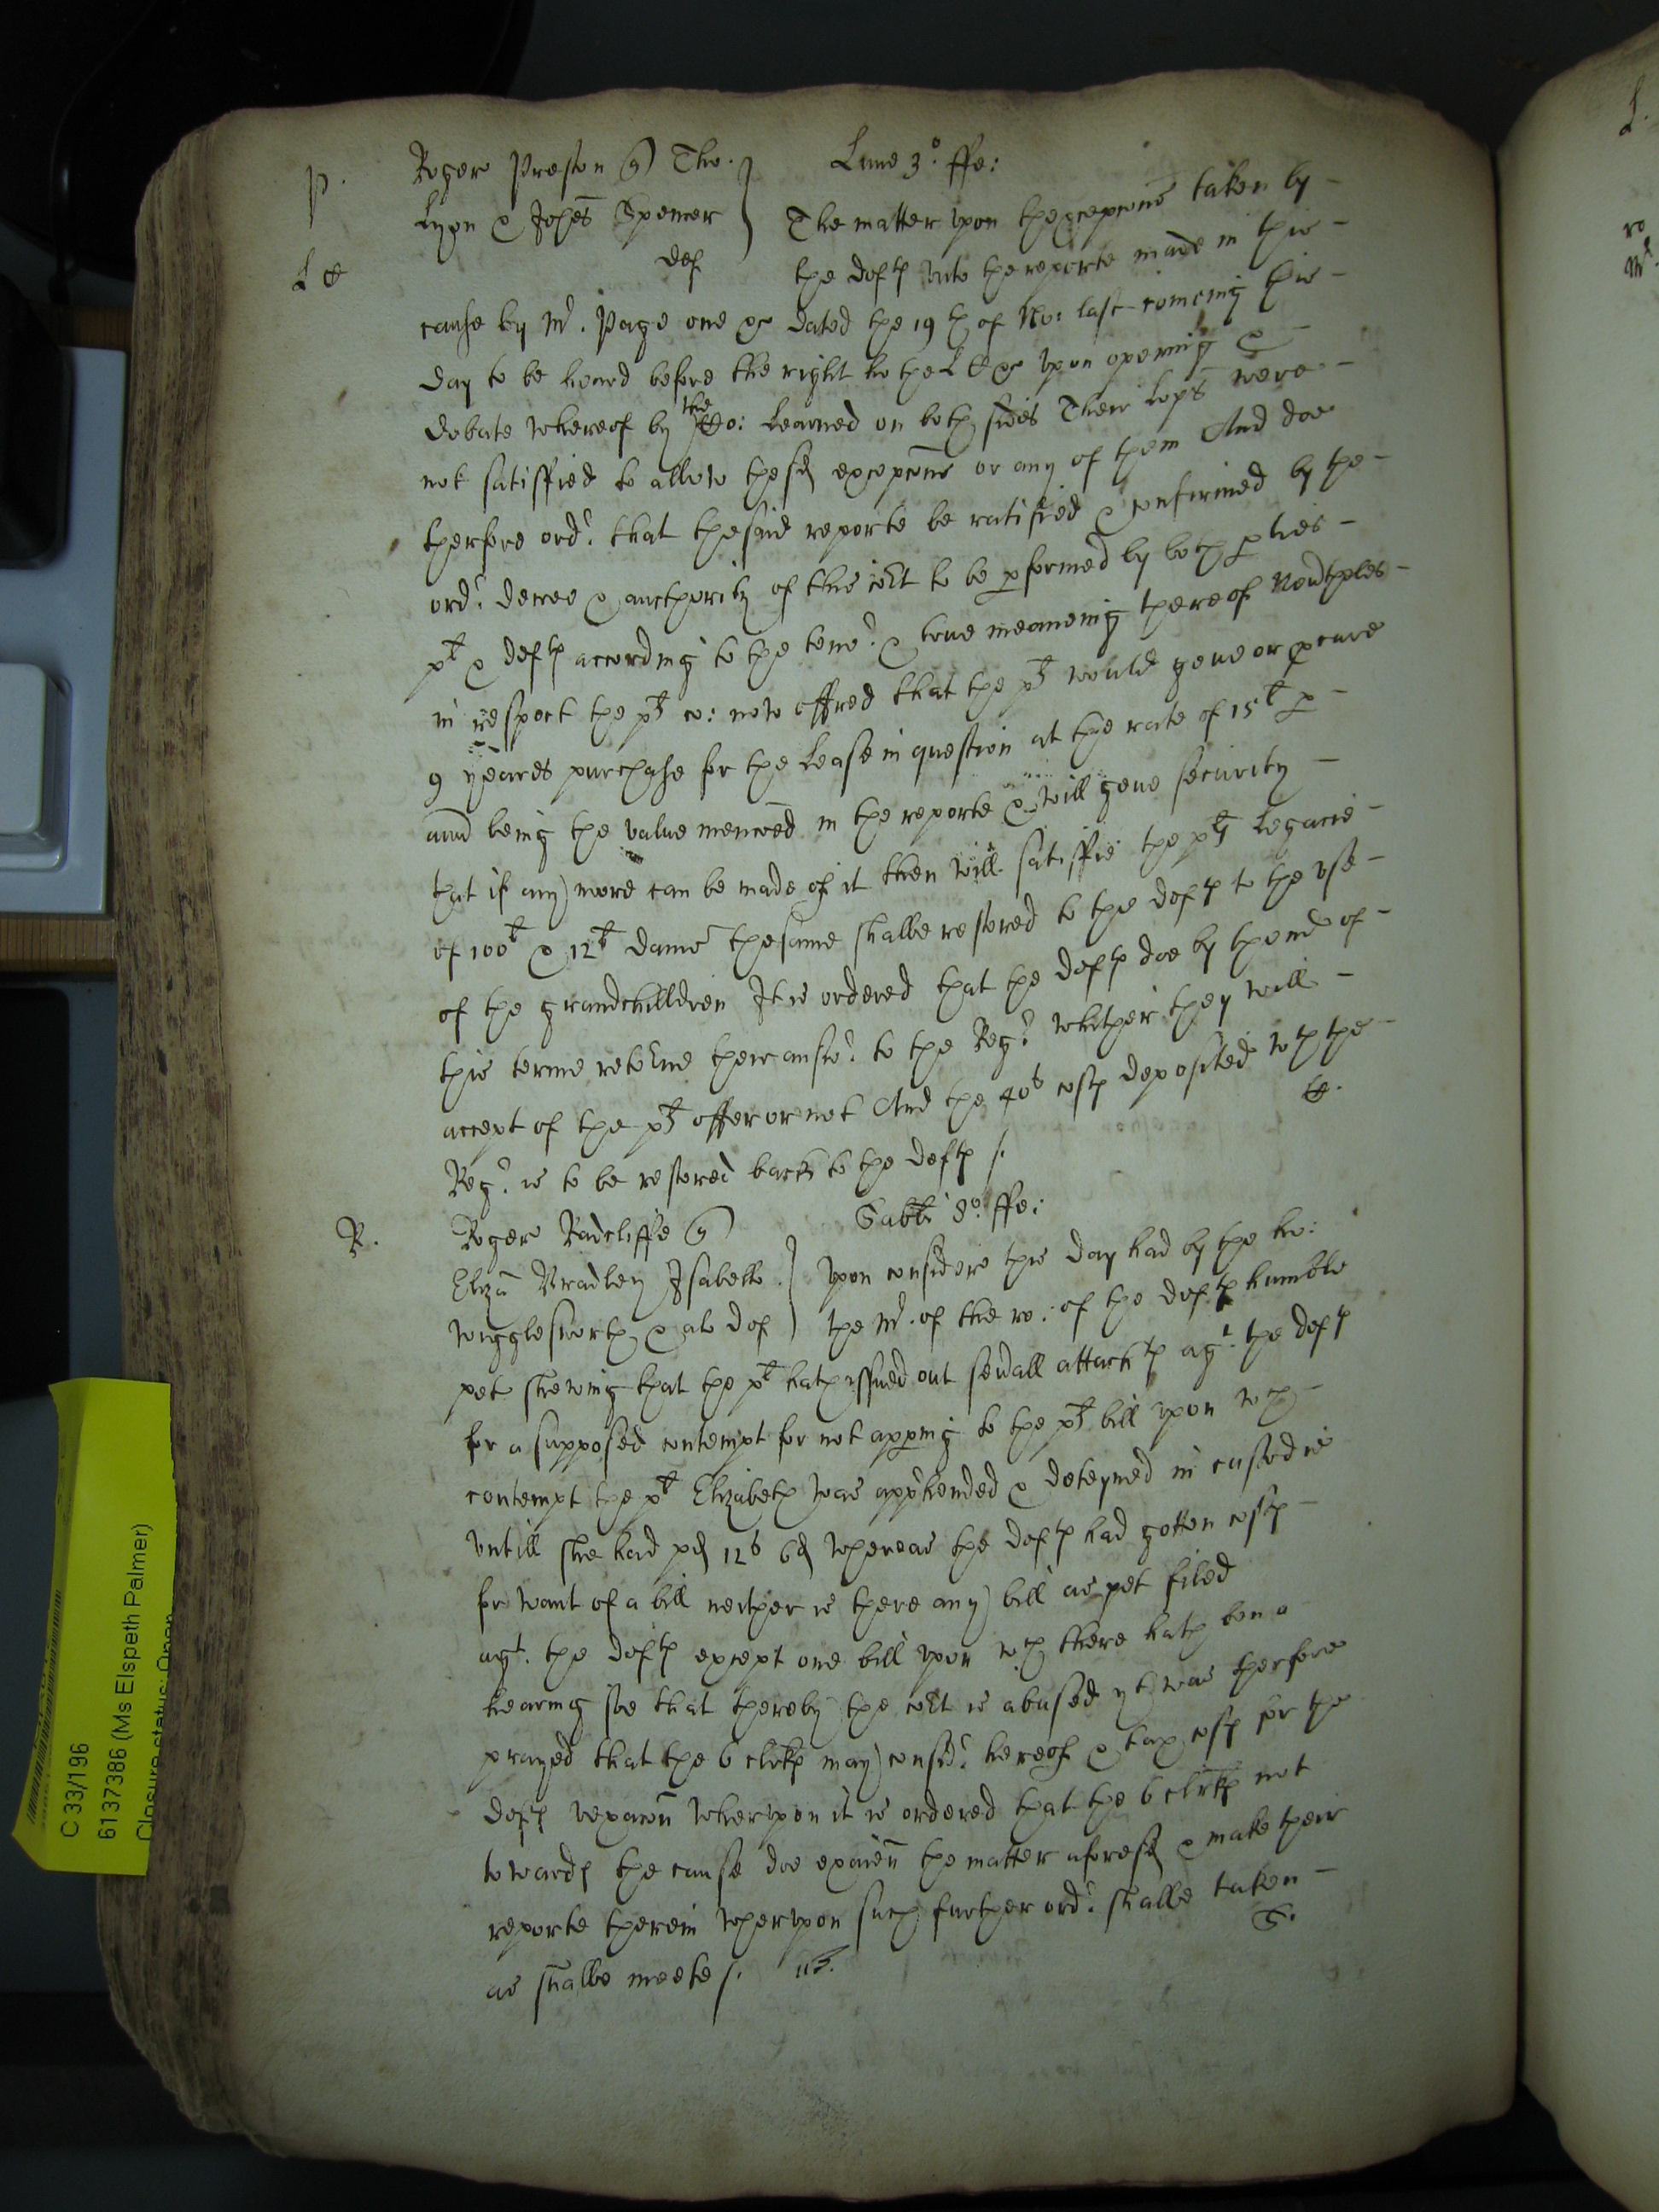 P. Roger Preston q Tho: Lune 3o. ffe:
Lyon & Johes Spencer The matter vpon thexcepcons taken by -
L C def the deftes vnto the reporte made in this -
cause by Mr. Page one &c dated the 19th of No: last coming this -
day to be heard before the right ho the L C &c vpon opening & -
debate whereof by the Co: learned on both sides Their Lops were -
not satisffied to allowe the sd excepcons or any of them And doe
therfore ordr. that the said reporte be ratified & confirmed by the -
ordr. decree & aucthority of this cort to be pformed by both pties -
plt & deftes according to the tenor. & true meaneing thereof Nevrtheles -
in respect the plts co: now offred that the plt would geue or pcure
9 yeares purchase for the Lease in question at the rate of 15l p -
annu being the value mencoed in the reporte & will geue security -
that if any more can be made of it then will satisffie the plts Legacie -
of 100l & 12l dam the same shalbe restored to the deftes to the vse -
of the grandchilldren It is ordered that the deftes doe by thend of -
this terme retorne their answr. to the Regr. whither they will -
accept of the plts offer or not And the 40s costes deposited wth the -
Regr. is to be restored back to the deftes /.
R. Roger Radcliffe q Sabti 8o. ffe:
Eliza Bradley Isabell Vpon consideracon this day had by the ho:
Wigglesworth & als def the Mr. of the ro: of the deftes humble
pet shewing that the plt hath issued out sevrall attachtes agt. the deftes
for a supposed contempt for not apping to the plts bill vpon wch -
contempt the plt Elizabeth was apprhended & deteyned in custodie
vntill she had pd 12s 6d whereas the deftes had gotten costes -
for want of a bill neither is there any bill as yet filed
agt. the deftes except one bill vpon wch there hath ben a
hearing soe that thereby the cort is abused yt was therfore
prayed that the 6 clrkes may considr. hereof & tax costes for the
deftes vexacon Whervpon it is ordered that the 6 clrkes not
towardes the cause doe examen the matter aforesd & make their
reporte therein whervpon such further ordr. shalbe taken -
as shalbe meete /.
C 33/196
6137386 (Ms Elspeth Palmer)
Closure status: Open